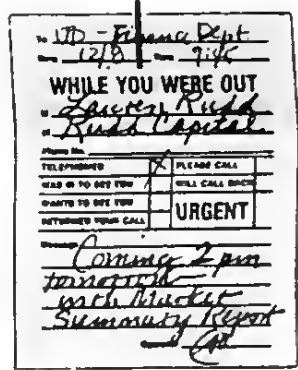 To JD - Finance Dept
Date 12/8 Time 9:45
WHILE YOU WERE OUT
M Lauren Rudd
of Rudd Capital
Phone No.
TELEPHONED X PLEASE CALL
WAS IN TO SEE YOU WILL CALL BACK
WANTS TO SEE YOU URGENT
RETURNED YOUR CALL
Message
Coming 2 pm
tomorrow
with Market
Summary Report